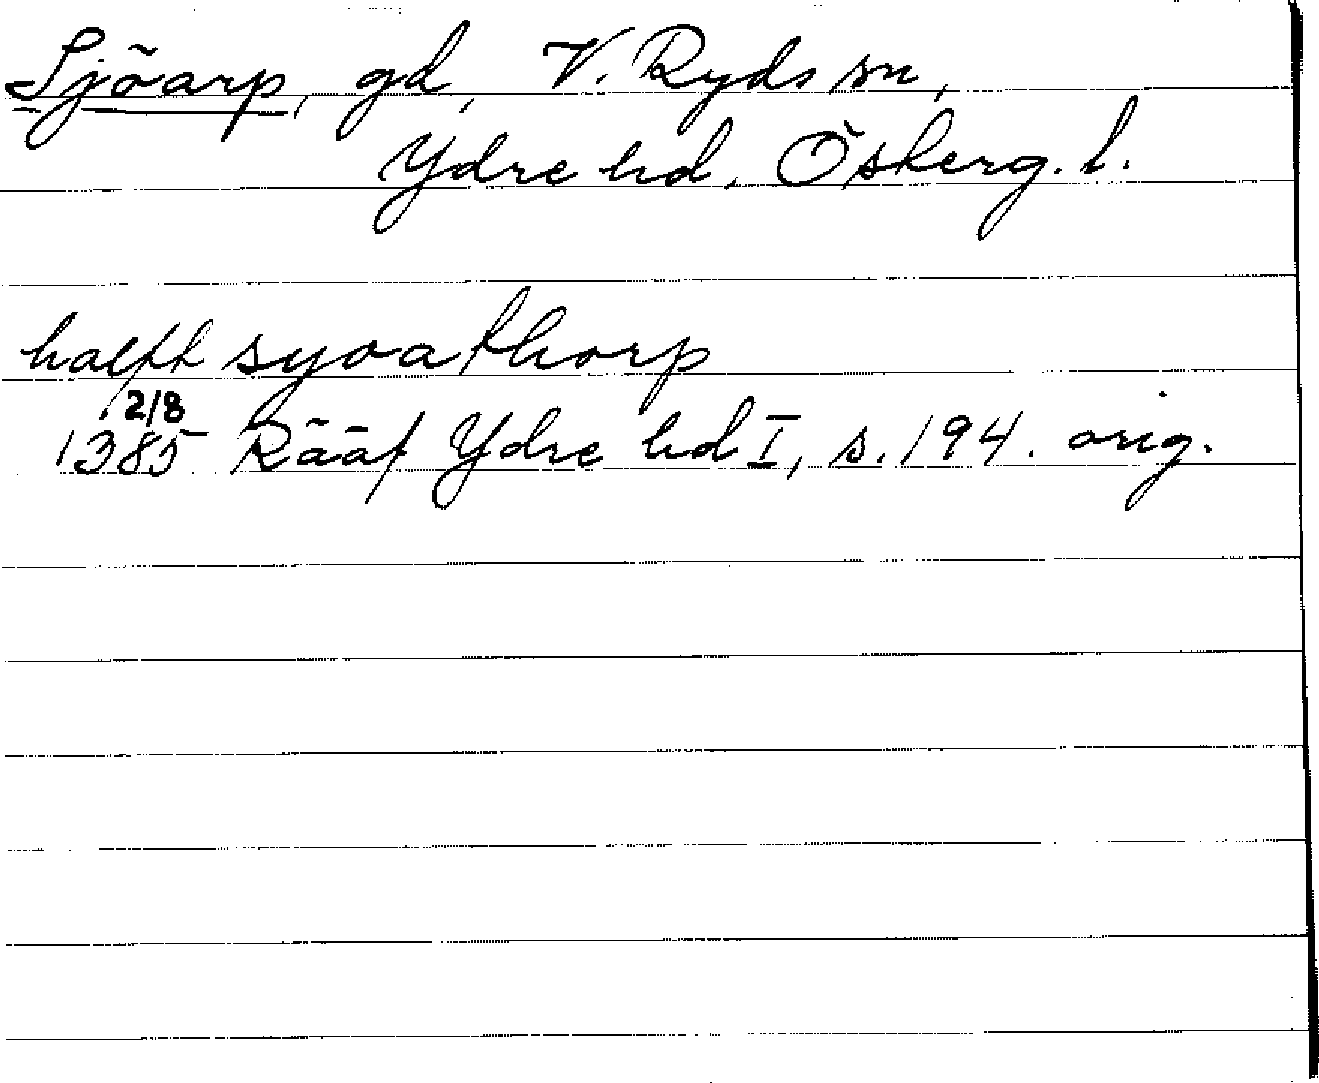 Sjöarp, gd, V. Ryds sn,
Ydre hd, Österg. l.
halfft syoathorp
2/8
1385 Rääf Ydre hd I, s. 194. orig.